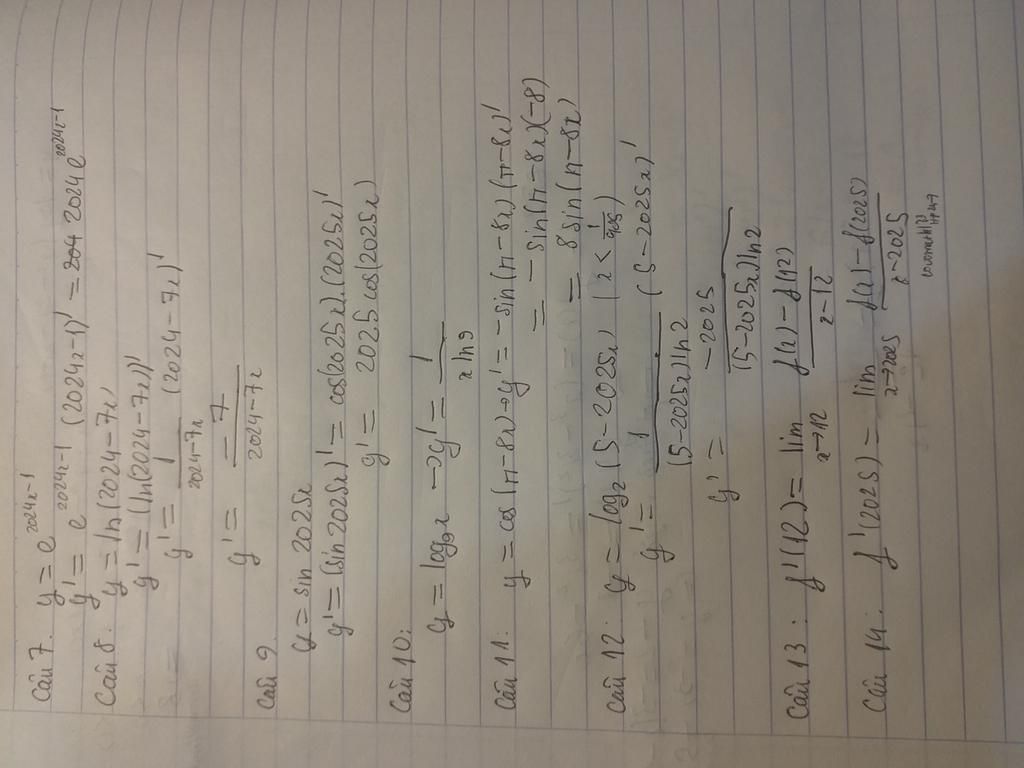 Câu 7. y = e^{2024x-1}
y' = e^{2024x-1} (2024x-1)' = 2024 e^{2024x-1}
Câu 8: y = ln(2024-7x)
y' = (ln(2024-7x))'
y' = \frac{1}{2024-7x} (2024-7x)'
y' = \frac{-7}{2024-7x}
Câu 9.
y = sin 2025x
y' = (sin 2025x)' = cos(2025x).(2025x)'
y' = 2025 cos(2025x)
Câu 10:
y = log_9 x → y' = \frac{1}{x ln 9}
Câu 11: y = cos(π-8x) → y' = -sin(π-8x)(π-8x)'
= -sin(π-8x)(-8)
= 8sin(π-8x)
Câu 12: y = log_2 (5-2025x)
y' = \frac{1}{(5-2025x)ln2} (5-2025x)'
y' = \frac{-2025}{(5-2025x)ln2}
Câu 13: f'(12) = lim_{x→12} \frac{f(x)-f(12)}{x-12}
Câu 14: f'(2025) = lim_{x→2025} \frac{f(x)-f(2025)}{x-2025}